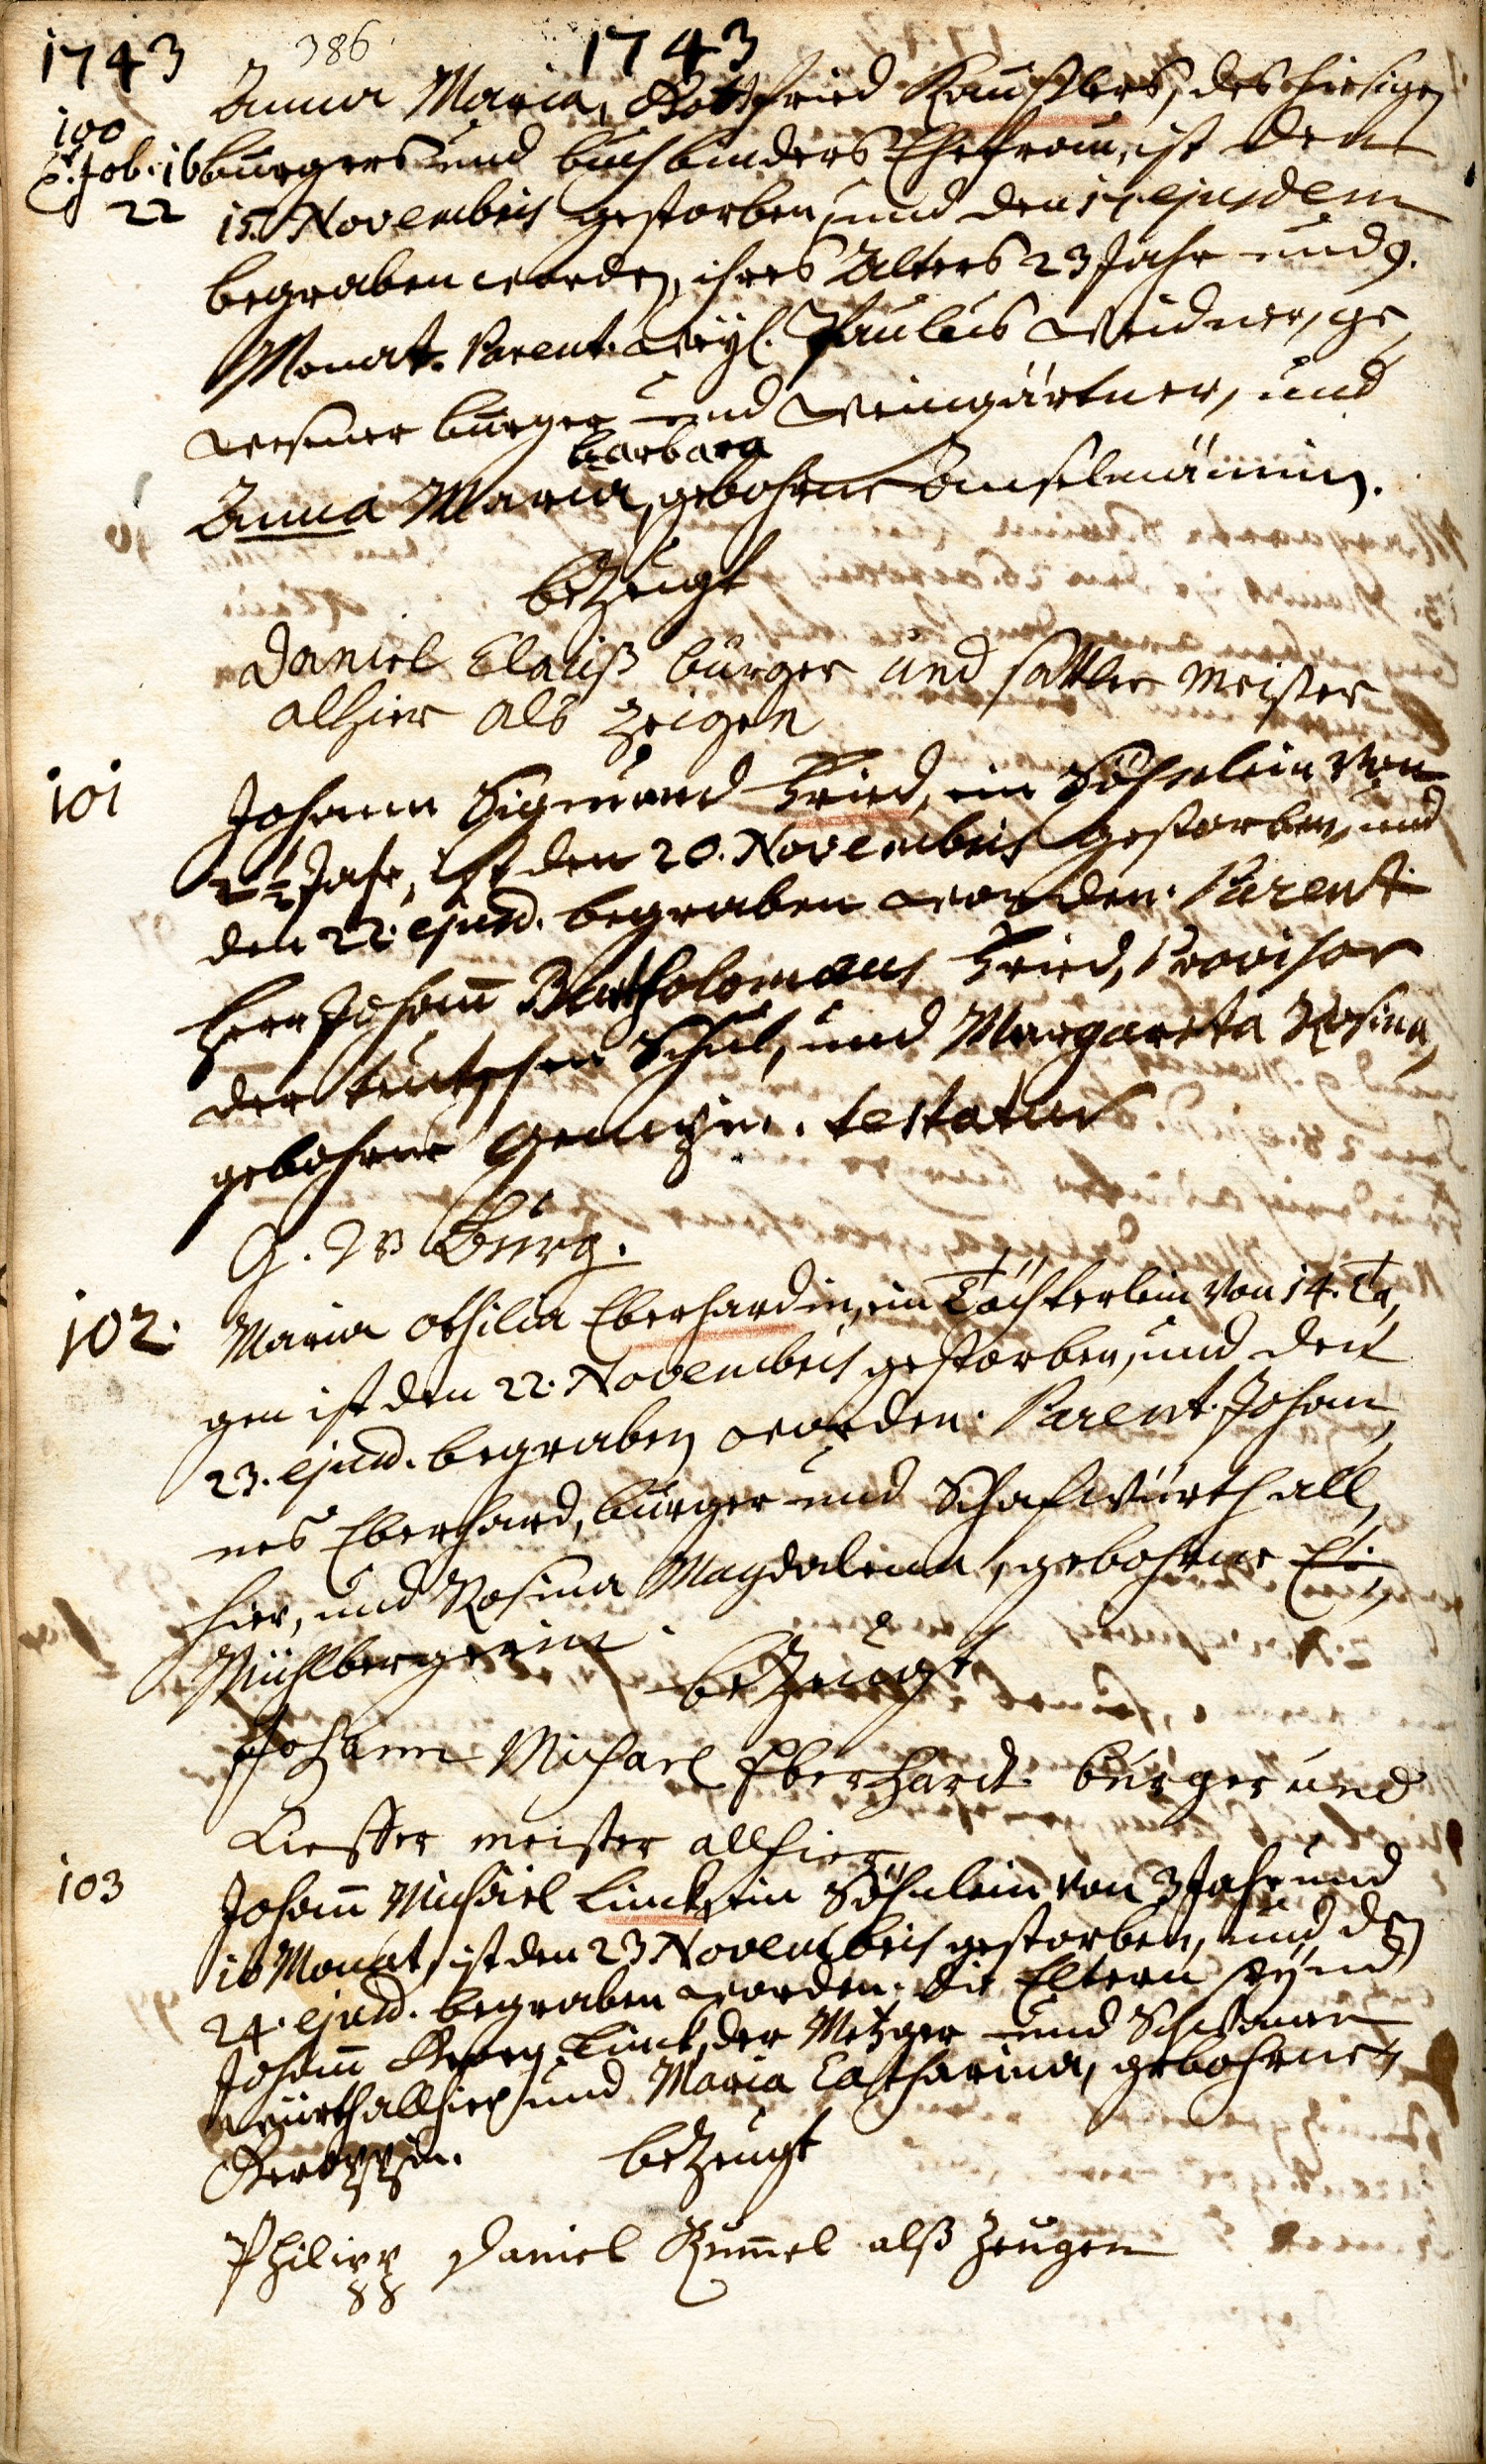 1743 386 1743
100 Anna Maria, Gottfried Kaüßlers, des hiesigen
Hiob. 16 burgers und buchbinders Ehefrau, ist den
22 15. Novembris gestorben, und den 17. ejusdem
begraben worden, ihres Alters 23 Jahr und 9.
Monat. Parent. weyl. Paulus Weidner, ge„
wesener burger und Weingärtner, und
barbara
Anna Maria, gebohrne
bezeugt
Daniel Clauß burger und sattler meister
alhier als zeigen
101 Johann Sigmund Fried, ein Söhnlein von
2 1/2 Jahr, ist den 20. Novembris gestorben, und
den 22. ejusd. begraben worden. Parent.
Herr Johann Bartholomaeus Fried, Provisor
der teutschen Schul, und Margareta Rosina,
gebohrne testatur
G. W Bürg.
102. Maria Othilia Eberhardin, ein Töchterlein von 14. Ta„
gen ist den 22. Novembris gestorben, und den
23. ejusd. begraben worden. Parent. Johan„
nes Eberhard, burger und Schafwürth all„
hier, und Rosina Magdalena, gebohrne
Mühlbergerin.
bezeugt
Johann Michael Eberhardt burger und
Kieffer meister allhier
103 Johann Michäel Linck, ein Söhnlein von 3 Jahr und
10 Monat, ist den 23 Novembris gestorben, und den
24. ejusd. begraben worden. die Eltern seynd
Johann Georg Linck, der Metzger und Schwanen
würth allhier, und Maria Catharina, gebohrne
bezeugt
Philipp Daniel Kümmel alß zeugen